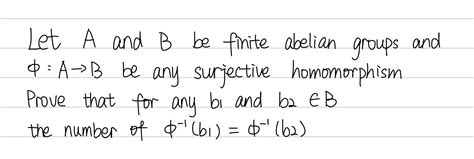 Let A and B be finite abelian groups and
Φ : A→B be any surjective homomorphism
Prove that for any b1 and b2 ∈B
the number of Φ⁻¹(b1) = Φ⁻¹(b2)